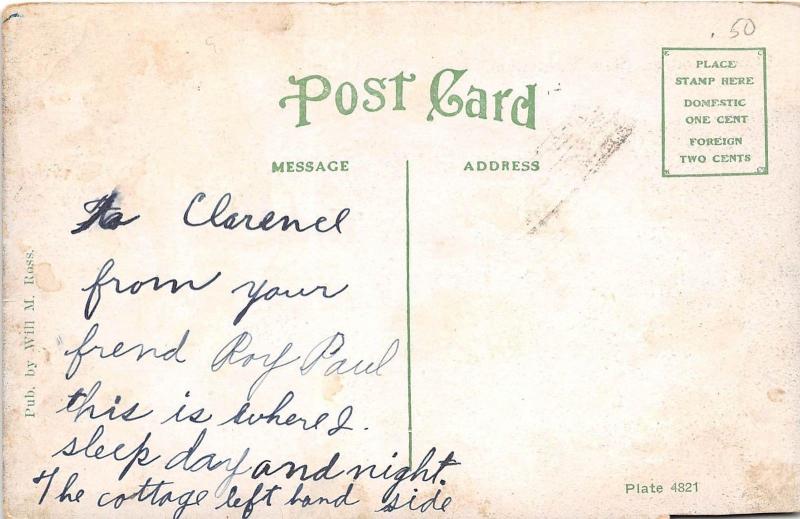 .50
PLACE
STAMP HERE
DOMESTIC
ONE CENT
FOREIGN
TWO CENTS
Post Card
MESSAGE
ADDRESS
To Clarence
from your
frend Roy Paul
this is where I.
sleep day and night.
The cottage left hand side
Pub. by Will M. Ross.
Plate 4821